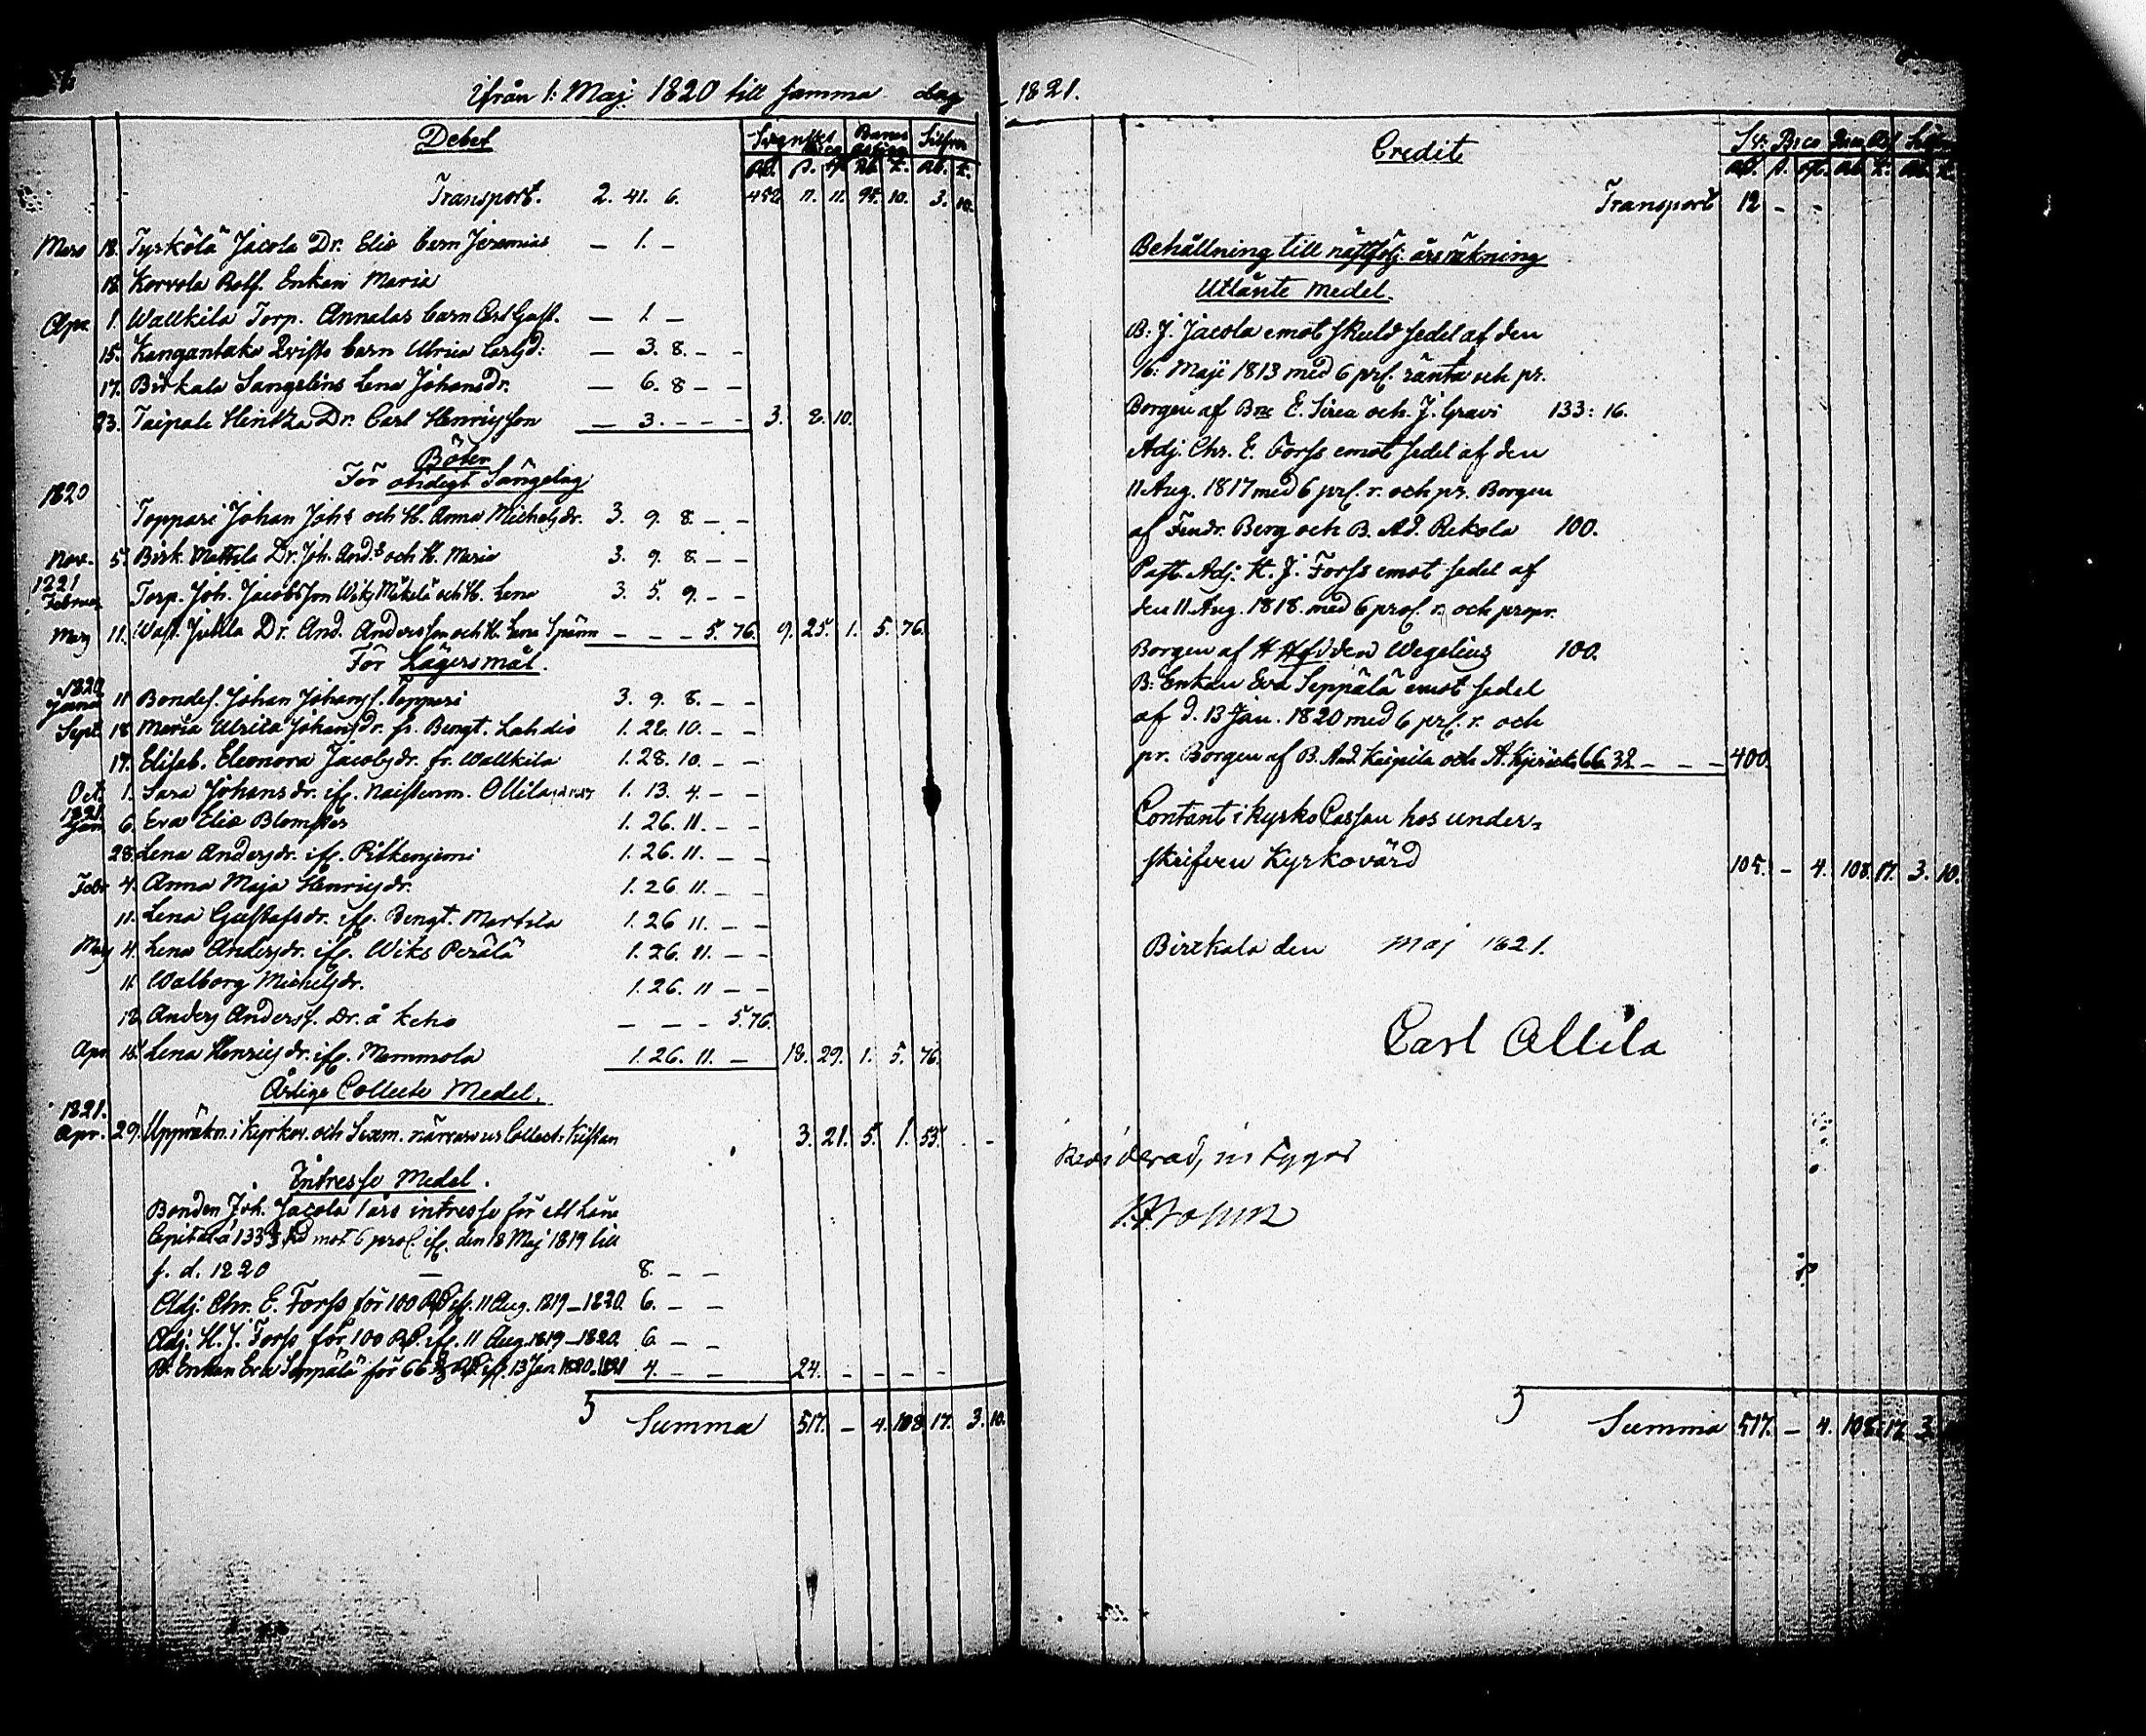 ifrån 1: Maj 1820 till samma dag
Debet
Rd. s. rst. Rb. k. Rb. k.
Transport. 2. 41. 6. 452. 11. 11. 95. 10. 3. 10.
Mars 18. Tyrkölä Jacola Dr. Elis barn Jeremias — 1. —
18. Korvola Enkan Maria
Apr. 1. Wallkila Torp. Annalas barn Carl Gust. — 1. —
15. Kangantaka barn Ulrica Carlsd: — 3. 8. — —
17. Birkala Sangelins Lena Johansdr. — 6. 8 — —
23. Taipale Heikka Dr. Carl Henricsson — 3. — — — 3. 2. 10.
Böter
För otidigt Sängelag
1820
Toppari Johan Johs och H. Anna Michelsdr. 3. 9. 8. — —
Nov. 5. Birk. Mattila Dr. Joh. And.s och H. Maria 3. 9. 8. — —
1821
Februar Torp. Joh. Jacobsson Wiks Mäkelä och H. Lena 3. 5. 9. — —
Mars 11. Juhlla Dr. And. Andersson och H. Lena — — — 5. 76. 9. 25. 1. 5. 76.
För Lägersmål.
1820
11 Bondes. Johan Johans. Toppari 3. 9. 8. — —
Sept. 18 Maria Ulrica Johansdr. fr. Bengt. Lahdis 1. 28. 10. — —
17. Elisab. Eleonora Jacobsdr. fr. Wallkila 1. 28. 10. — —
Oct. 1. Sara Johansdr. ifr. Naistenm. Ollila 1. 13. 4. — —
1821
Jan 6. Eva Elis Blomster 1. 26. 11. — —
28. Lena Andersdr. ifr. Pitkeniemi 1. 26. 11. — —
Febr 4. Anna Maja Henricsdr. 1. 26. 11. — —
11. Lena Gustafsdr. ifr. Bengt. Martila 1. 26 11. — —
Mars 4. Lena Andersdr. ifr. Wiks Perälä 1. 26. 11. — —
11. Walborg Michelsdr. 1. 26. 11 — —
18. Anders Anderss. Dr. å Keho — — — 5. 76.
Apr. 15. Lena Henricsdr. ifr. Mommola 1. 26. 11. — 18. 29. 1. 5. 76.
Årlige Collecte Medel.
1821.
Apr. 29. Uppräkn. i Kyrkov. och Sexm. närvaro ur Collect-Kistan 3. 21. 5. 1. 53. — —
Intresse Medel.
Bonden Joh. Jacola 1 års intresse för ett Låne
Capital à 133 1/3 Rd mot 6 proc. ifr. den 18 Maj 1819 till
s. d. 1820 8. — —
Adj. Chr. E. Forss för 100 Rd. ifr. 11 Aug. 1819—1820. 6. — —
Adj. H. J. Forss för 100 Rd. ifr. 11 Aug. 1819—1820. 6 — —
B. Enkan Eva Seppälä för 66 2/3 Rd. ifr. 13 Jan. 1820—1821 4. — — 24. — — — —
Summa 517. — 4. 108. 17. 3. 10.
1821.
Credit
Rd. s. rst. Rb. k. Rb. k.
Transport 12 — —
Behållning till nästfölj. årsräkning
Utlånte Medel.
B: J. Jacola emot skuldsedel af den
16: Maji 1813 med 6 prC. ränta och pr.
Borgen af E. Sirea och J. Gravi 133: 16.
Adj. Chr. E. Forss emot sedel af den
11 Aug. 1817 med 6 prC. r. och pr. Borgen
af Fendr. Berg och B. Ad. Rekola 100.
Past. Adj. H. J. Forss emot sedel af
den 11 Aug. 1818 med 6 proC. r. och propr.
Borgen af H Wegelius 100.
B: Enkan Eva Seppälä emot sedel
af d. 13 Jan. 1820 med 6 prC. r. och
pr. Borgen af B. And. Kaipila och A. 66 32 — — — 400.
Contant i kyrko Cassan hos under=
skrifven Kyrkovärd 105. — 4. 108. 17. 3. 10.
Birkala den Maj 1821.
Carl Ollila
Reviderad, intygar
Summa 517. — 4. 108. 17. 3.